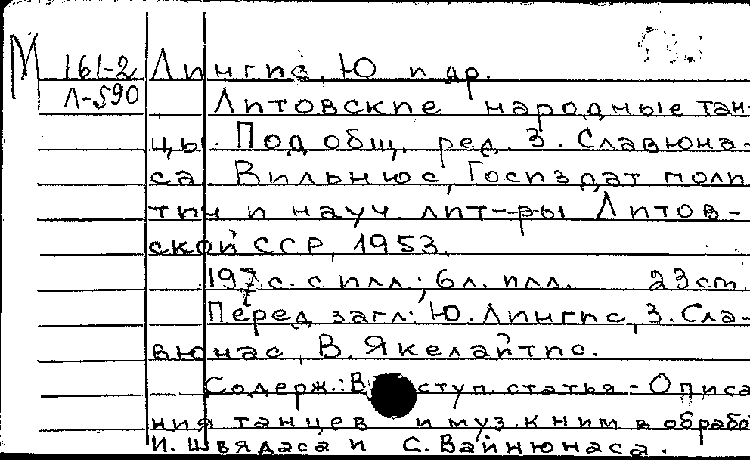 М 161-2 Лингис, Ю и др.
Л-590 Литовские народные тан-
цы. Под общ. ред. З. Славюна-
са. Вильнюс, Госиздат полит
тич и науч. лит-ры Литов-
ской ССР, 1953.
197 с. с илл.; 6 л. илл. 23 см.
Перед загл.: Ю. Лингис, З. Сла-
вюнас, В. Якелайтис.
Содерж.: Вступ. статья - Описа
ния танцев и муз. к ним в обрабо
И. Швядаса и С. Вайнюнаса.